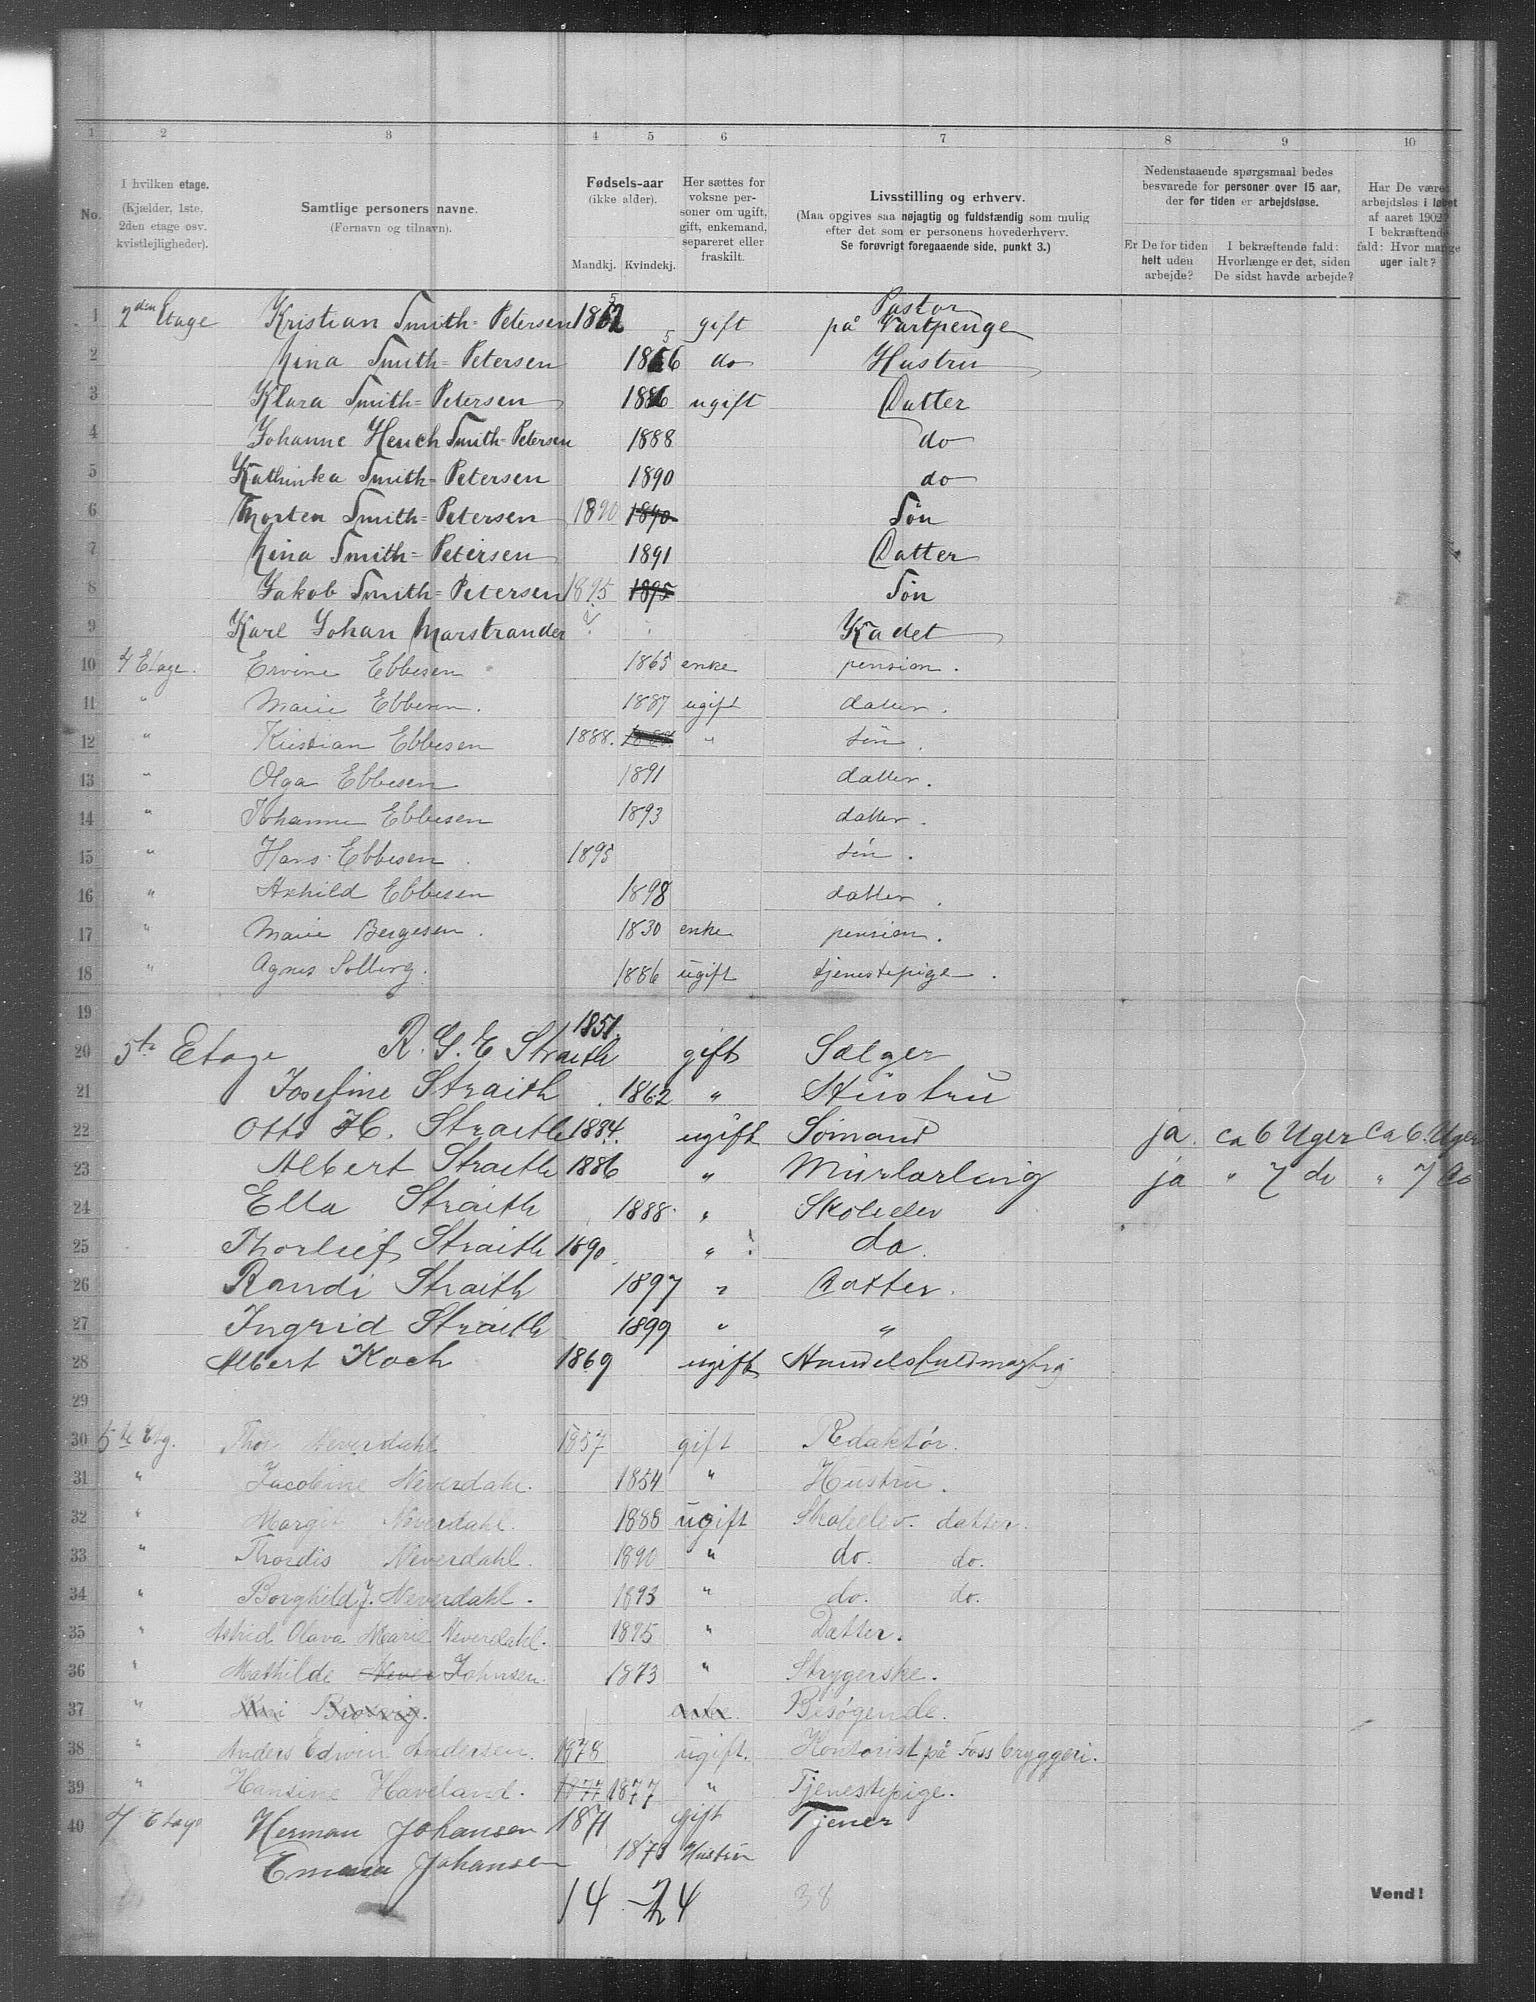 1 2 3 4 5 6 7 8 9 10
No.
I hvilken etage.
(Kjælder, 1ste, 2den etage osv. kvistlejligheder).
Samtlige personers navne.
(Fornavn og tilnavn).
Fødsels-aar
(ikke alder).
Mandkj. Kvindekj.
Her sættes for voksne personer om ugift, gift, enkemand, separeret eller fraskilt.
Livsstilling og erhverv.
(Maa opgives saa nøjagtig og fuldstændig som mulig efter det som er personens hovederhverv. Se forøvrigt foregaaende side, punkt 3.)
Nedenstaaende spørgsmaal bedes besvarede for personer over 15 aar, der for tiden er arbejdsløse.
Er De for tiden helt uden arbejde?
I bekræftende fald: Hvorlænge er det, siden De sidst havde arbejde?
Har De været arbejdsløs i løbet af aaret 1902? I bekræftende fald: Hvor mange uger ialt?
1 2den Etage Kristian Smith-Petersen 1852 gift Pastor på Vartpenge
2 Nina Smith-Petersen 1856 do Hustru
3 Klara Smith-Petersen 1886 ugift Datter
4 Johanne Heuch Smith-Petersen 1888 do
5 Kathinka Smith-Petersen 1890 do
6 Morten Smith-Petersen 1890 1890 Søn
7 Nina Smith-Petersen 1891 Datter
8 Jakob Smith-Petersen 1895 1895 Søn
9 Karl Johan Marstrander ? Kadet
10 4 Etage. Ervine Ebbesen 1865 enke pension.
11 " Marie Ebbesen. 1887 ugift datter.
12 " Kristian Ebbesen 1888. " søn.
13 " Olga Ebbesen 1891 datter.
14 " Johanne Ebbesen 1893 datter.
15 " Hans Ebbesen. 1895 søn.
16 " Ebbesen 1898 datter.
17 " Marie Bergesen. 1830 enke pension.
18 " Agnes Solberg. 1886 ugift tjenestepige.
19
20 5te Etage R. G. E Straith 1851. gift Sælger
21 Josefine Straith 1862 " Hustru
22 Otto H. Straith 1884. ugift Sømand ja. ca 6 Uger ca 6. Uger
23 Albert Straith 1886 " Murlærling ja " 7 do " 7 do
24 Ella Straith 1888. " Skolelev
25 Thorleif Straith 1890. " do.
26 Randi Straith 1897 " Datter.
27 Ingrid Straith 1899 " "
28 Albert Koch 1869 ugift Handelsfuldmægtig
29
30 5te Etg. Thor Neverdahl 1857 gift Redaktør.
31 " Jacobine Neverdahl. 1854 " Hustru.
32 " Margit Neverdahl. 1888 ugift Skolelev. datter.
33 " Thordis Neverdahl. 1890 " do. do.
34 " Borghild J. Neverdahl. 1893 " do. do.
35 " Astrid Olava Marie Neverdahl. 1895 " Datter.
36 " Mathilde Never Johnsen. 1873 " Strygerske.
37 " enke. Besøgende.
38 " Anders Edwin Andersen. 1878 ugift. Kontorist på Foss bryggeri.
39 " Hansine Haveland. 1877 1877 " Tjenestepige.
40 4 Etage Herman Johansen 1871 gift Tjener
Emma Johansen Hustru
14 - 24 38
Vend!